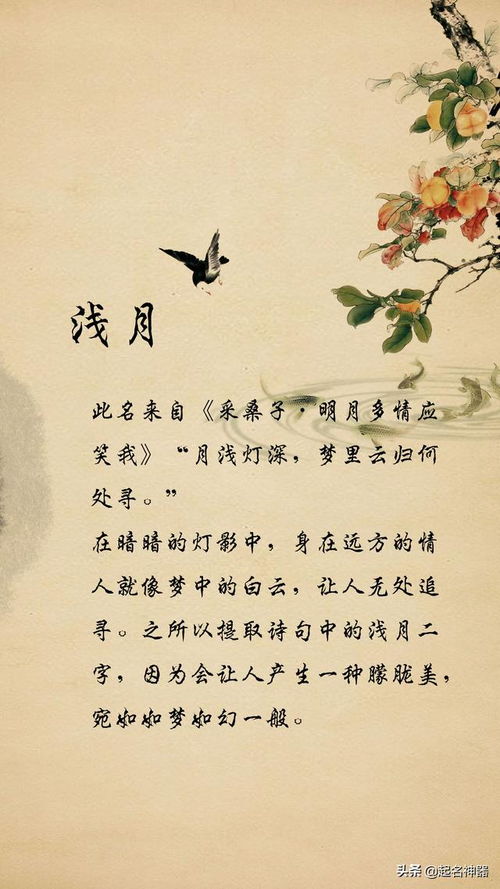 浅月
此名来自《采桑子·明月多情应
笑我》“月浅灯深，梦里云归何
处寻。”
在暗暗的灯影中，身在远方的情
人就像梦中的白云，让人无处追
寻。之所以提取诗句中的浅月二
字，因为会让人产生一种朦胧美，
宛如如梦如幻一般。
头条 @起名神器